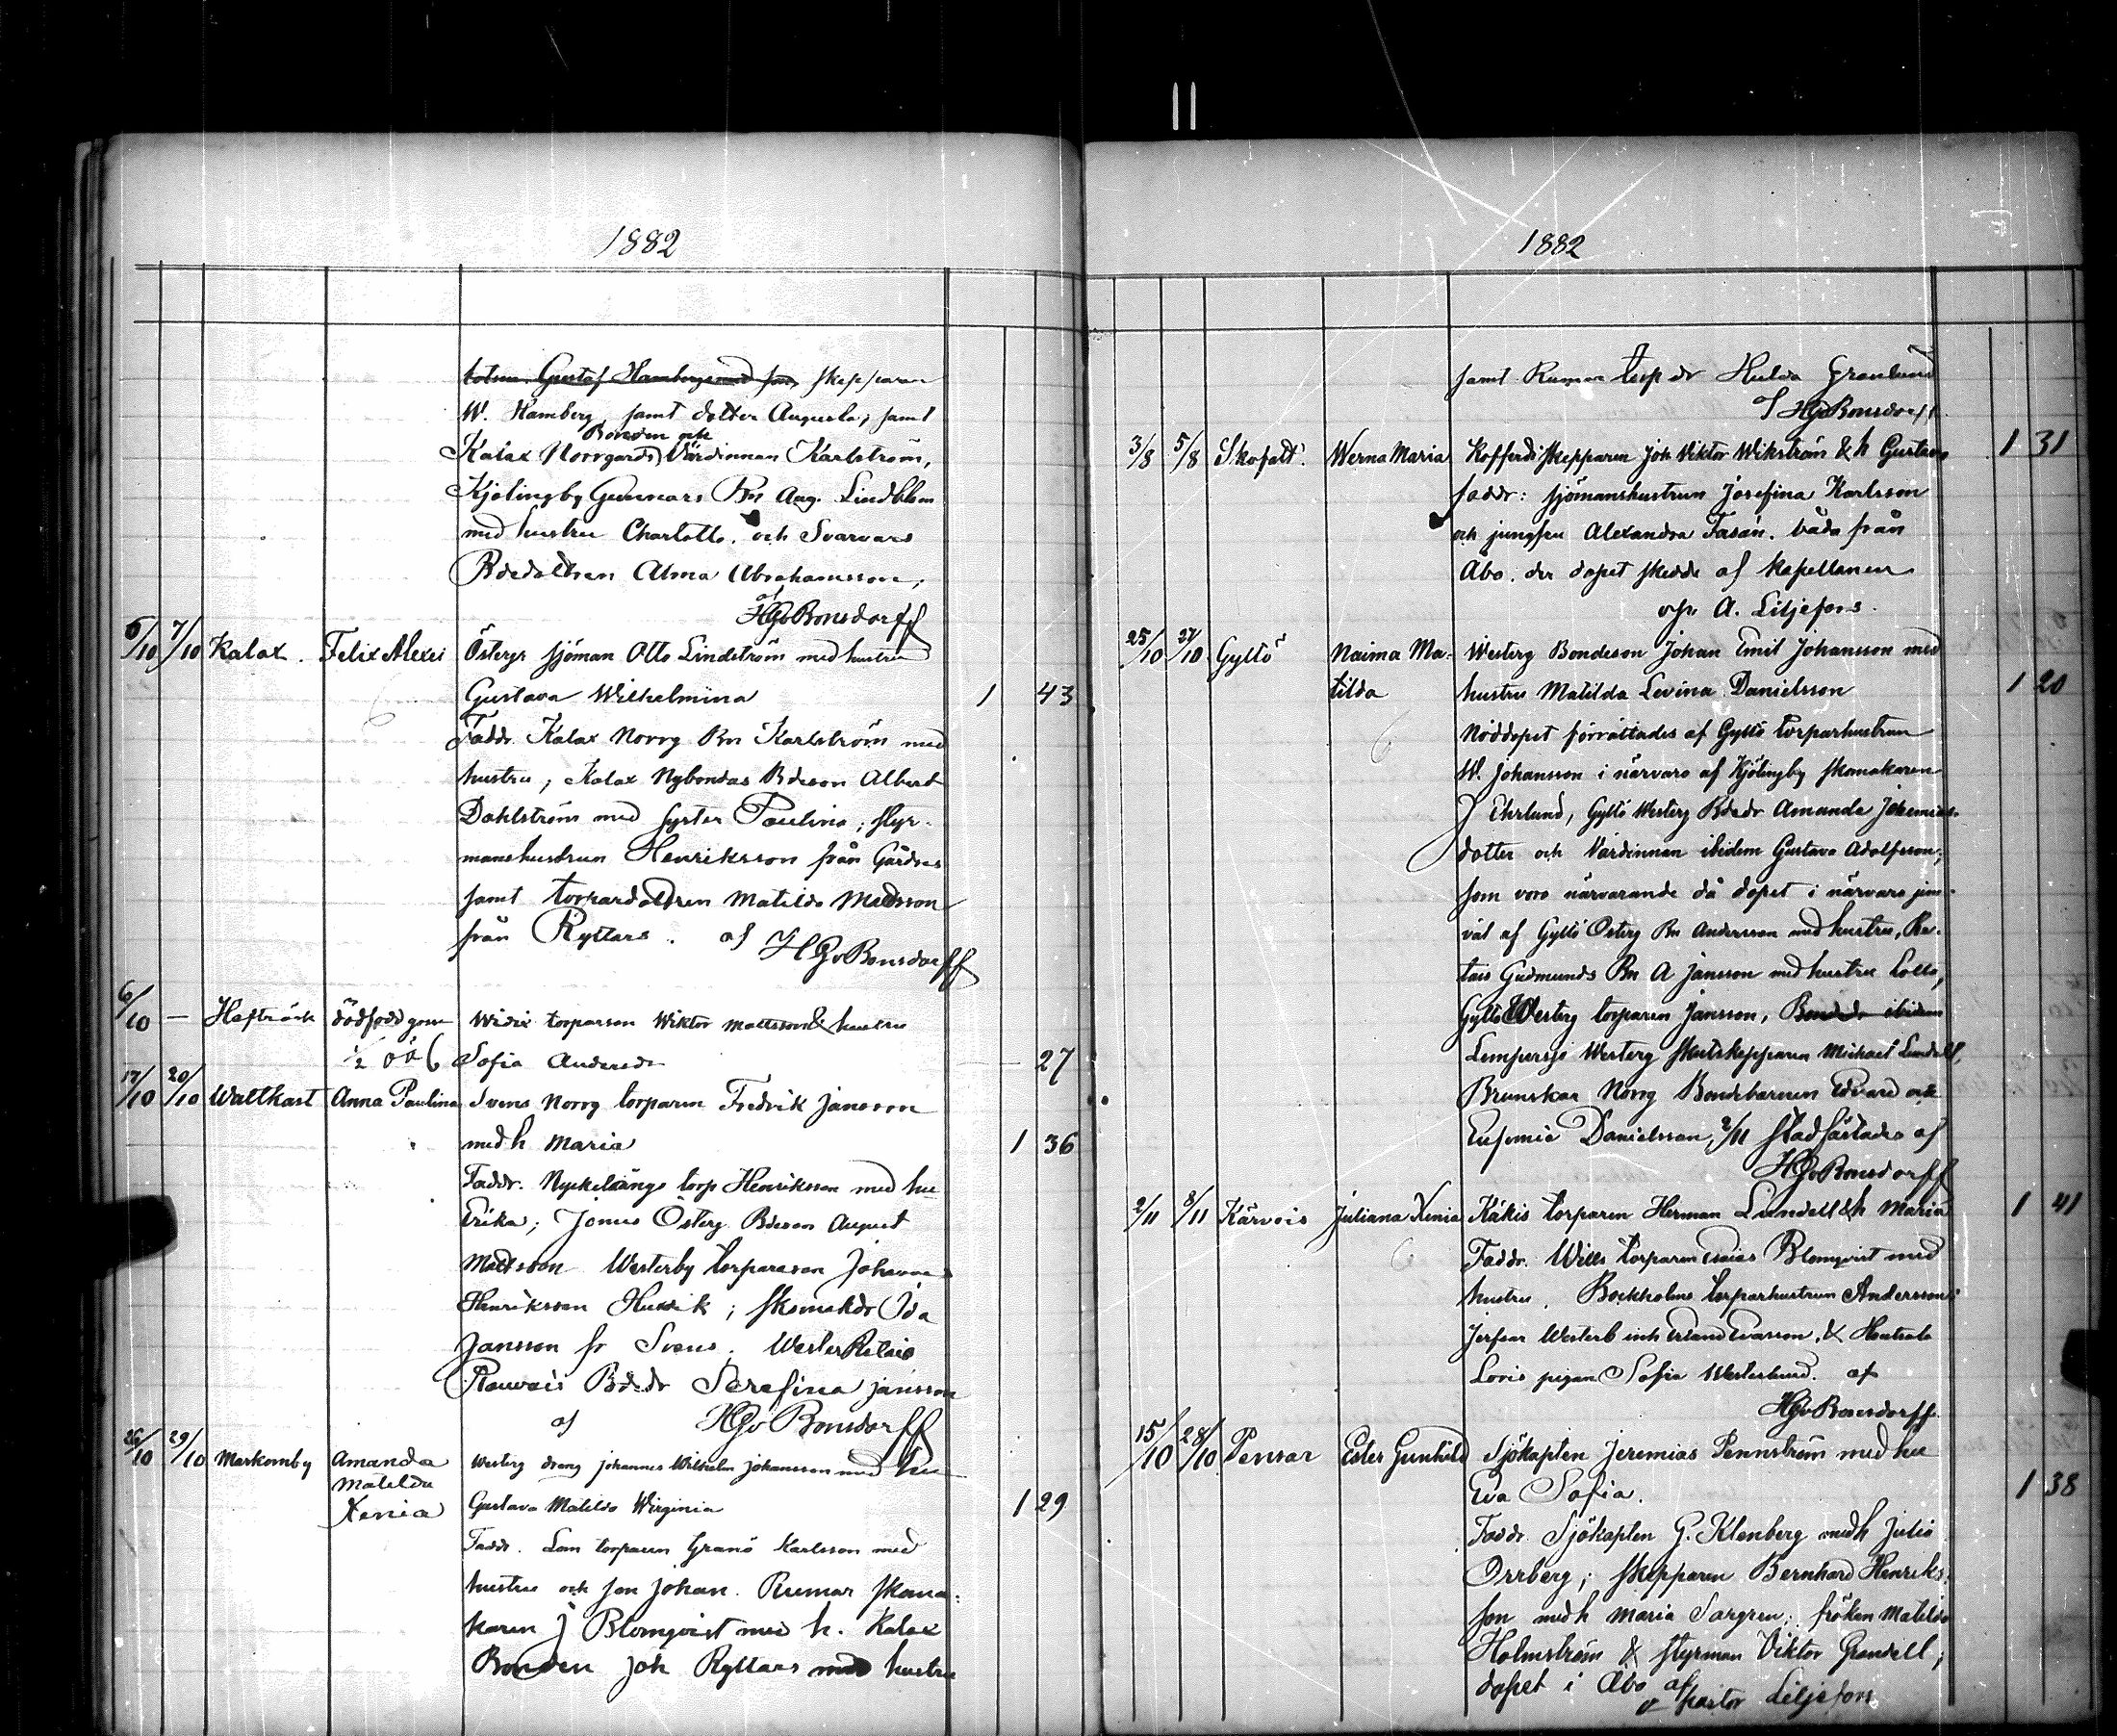 1882
skepparen
W. Hamberg, samt dotter Augusta, samt
Bonden och
Kalax Norrgårds Värdinnan Karlström,
Kjölingby Gunnars Bn Aug. Lindblom
med hustru Charlotta, och Svarvars
Alma Abrahamsson,
af
HGvBonsdorff
6/10 7/10 Kalax. Felix Alexei Östergs sjöman Otto Lindström med hustru
Gustava Wilhelmina 1 43
Faddr. Kalax Norrg Bn Karlström med
hustru, Kalax Nybondas Bdeson Albert
Dahlström med syster Paulina; styr-
manshustrun Henriksson från Gärdnäs
samt torpardottren Matilda Mattsson
från Ryttars. af HGvBonsdorff
6/10 — dödfödd gosse torparson Wiktor Mattsson & hustru
Sofia Andersdr — 27
17/10 20/10 Waltkast Anna Paulina Svens Norrg torparen Fredrik Jansson
med h Maria 1 36
Faddr. Nyckelängs torp Henriksson med hu
Erika; Östergs Bdeson August
Mattsson Westerby torpareson Johannes
Henriksson ; skomakdr Ida
Jansson fr Svens; Wester Retais
Bdedr Serafina Jansson
af HGvBonsdorff
26/10 29/10 Markomby Amanda Westerg dreng Johannes Wilhelm Johansson med hu
Matilda
Xenia Gustava Matilda Wirginia 1 29
Faddr. Lom torparen Granö Karlsson med
hustru och son Johan. Rumar skoma-
karen J Blomqvist med h. Kalax
Bonden Joh Ryttars med hustru
1882
samt Rumar torp dr Hulda Granlund
af HGvBonsdorff
3/8 5/8 Skofatt. Werna Maria Kofferdiskepparen Joh Viktor Wikström & h Gustava 1 31
faddr: sjömanshustrun Josefina Karlsson
och jungfru Alexandra Fasán. båda från
Åbo. der dopet skedde af kapellanen
A. Liljefors.
25/10 27/10 Gyltö Naima Ma- Westerg Bondeson Johan Emil Johansson med
tilda hustru Matilda Levina Danielsson 1 20
Nöddopet förrättades af Gyltö torparhustrun
W. Johansson i närvaro af Kjölingby skomakaren
J Ehrlund, Gyltö Westerg Bdedr Amanda Jeremias-
dotter och Värdinnan ibidem Gustava Adolfsson,
som voro närvarande då dopet i närvaro jem-
väl af Gyltö Österg Bn Andersson med hustru, Re-
tais Gudmunds Bn A Jansson med hustru Lotta,
Gyltö Westerg torparen Jansson, Bondedr ibidem
Lempersjö Westerg skutskepparen Michael Lindell,
Brunskär Norrg Bondebarnen Edvard och
Eufemia Danielsson, 2/11 stadfästades af
HGvBonsdorff
2/11 3/11 Kärvois Juliana Xenia Käkis torparen Herman Lundell & h Maria 1 41
Faddr. Wills torparen Esaias Blomqvist med
hustru. Bockholms torparhustrun Andersson
Jerfsar Westerb inh Erland Evasson, &
Loris pigan Sofia Westerlund. af
HGvBonsdorff
15/10 28/10 Pensar Ester Gunhild Sjökapten Jeremias Pennström med hu
Eva Sofia. 1 38
Faddr. Sjökapten G. Klenberg med h Julia
Orrberg; skepparen Bernhard Henriks-
son med h Maria Sargren; fröken Matilda
Holmström & styrman Viktor Grandell;
dopet i Åbo af
pastor Liljefors